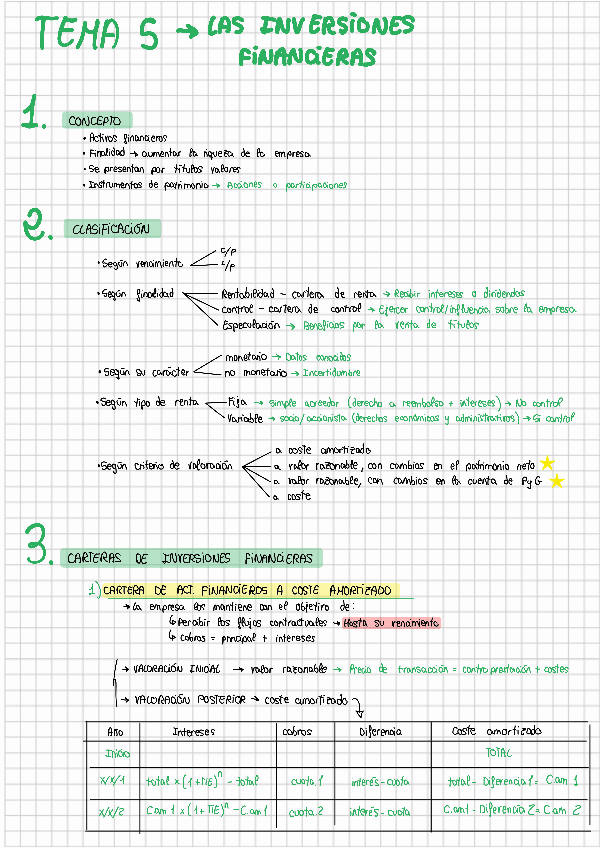 TEMA 5 → LAS INVERSIONES
FINANCIERAS
1. CONCEPTO
• Activos financieros
• Finalidad → aumentar la riqueza de la empresa
• Se presentan por títulos valores
• Instrumentos de patrimonio → Acciones o participaciones
2. CLASIFICACIÓN
• Según vencimiento
c/p
L/p
• Según finalidad
Rentabilidad - cartera de renta → Recibir intereses o dividendos
control - cartera de control → Ejercer control/influencia sobre la empresa
Especulación → Beneficios por la venta de títulos
• Según su carácter
monetario → Datos conocidos
no monetario → Incertidumbre
• Según tipo de renta
Fija → simple acreedor (derecho a reembolso + intereses) → No control
Variable → socio/accionista (derechos económicos y administrativos) → Sí control
• Según criterio de valoración
a coste amortizado
a valor razonable, con cambios en el patrimonio neto ★
a valor razonable, con cambios en la cuenta de PyG ★
a coste
3. CARTERAS DE INVERSIONES FINANCIERAS
1) CARTERA DE ACT. FINANCIEROS A COSTE AMORTIZADO
→ La empresa los mantiene con el objetivo de:
↳ Percibir los flujos contractuales → Hasta su vencimiento
↳ cobros = principal + intereses
→ VALORACIÓN INICIAL → valor razonable → Precio de transacción = contraprestación + costes
→ VALORACIÓN POSTERIOR → coste amortizado
Año Intereses cobros Diferencia Coste amortizado
Inicio TOTAL
X/X/1 total x (1+TIE)ⁿ - total cuota 1 interés - cuota total - Diferencia 1 = C.am 1
X/X/2 C.am 1 x (1+TIE)ⁿ - C.am 1 cuota 2 interés - cuota C.am 1 - Diferencia 2 = C.am 2